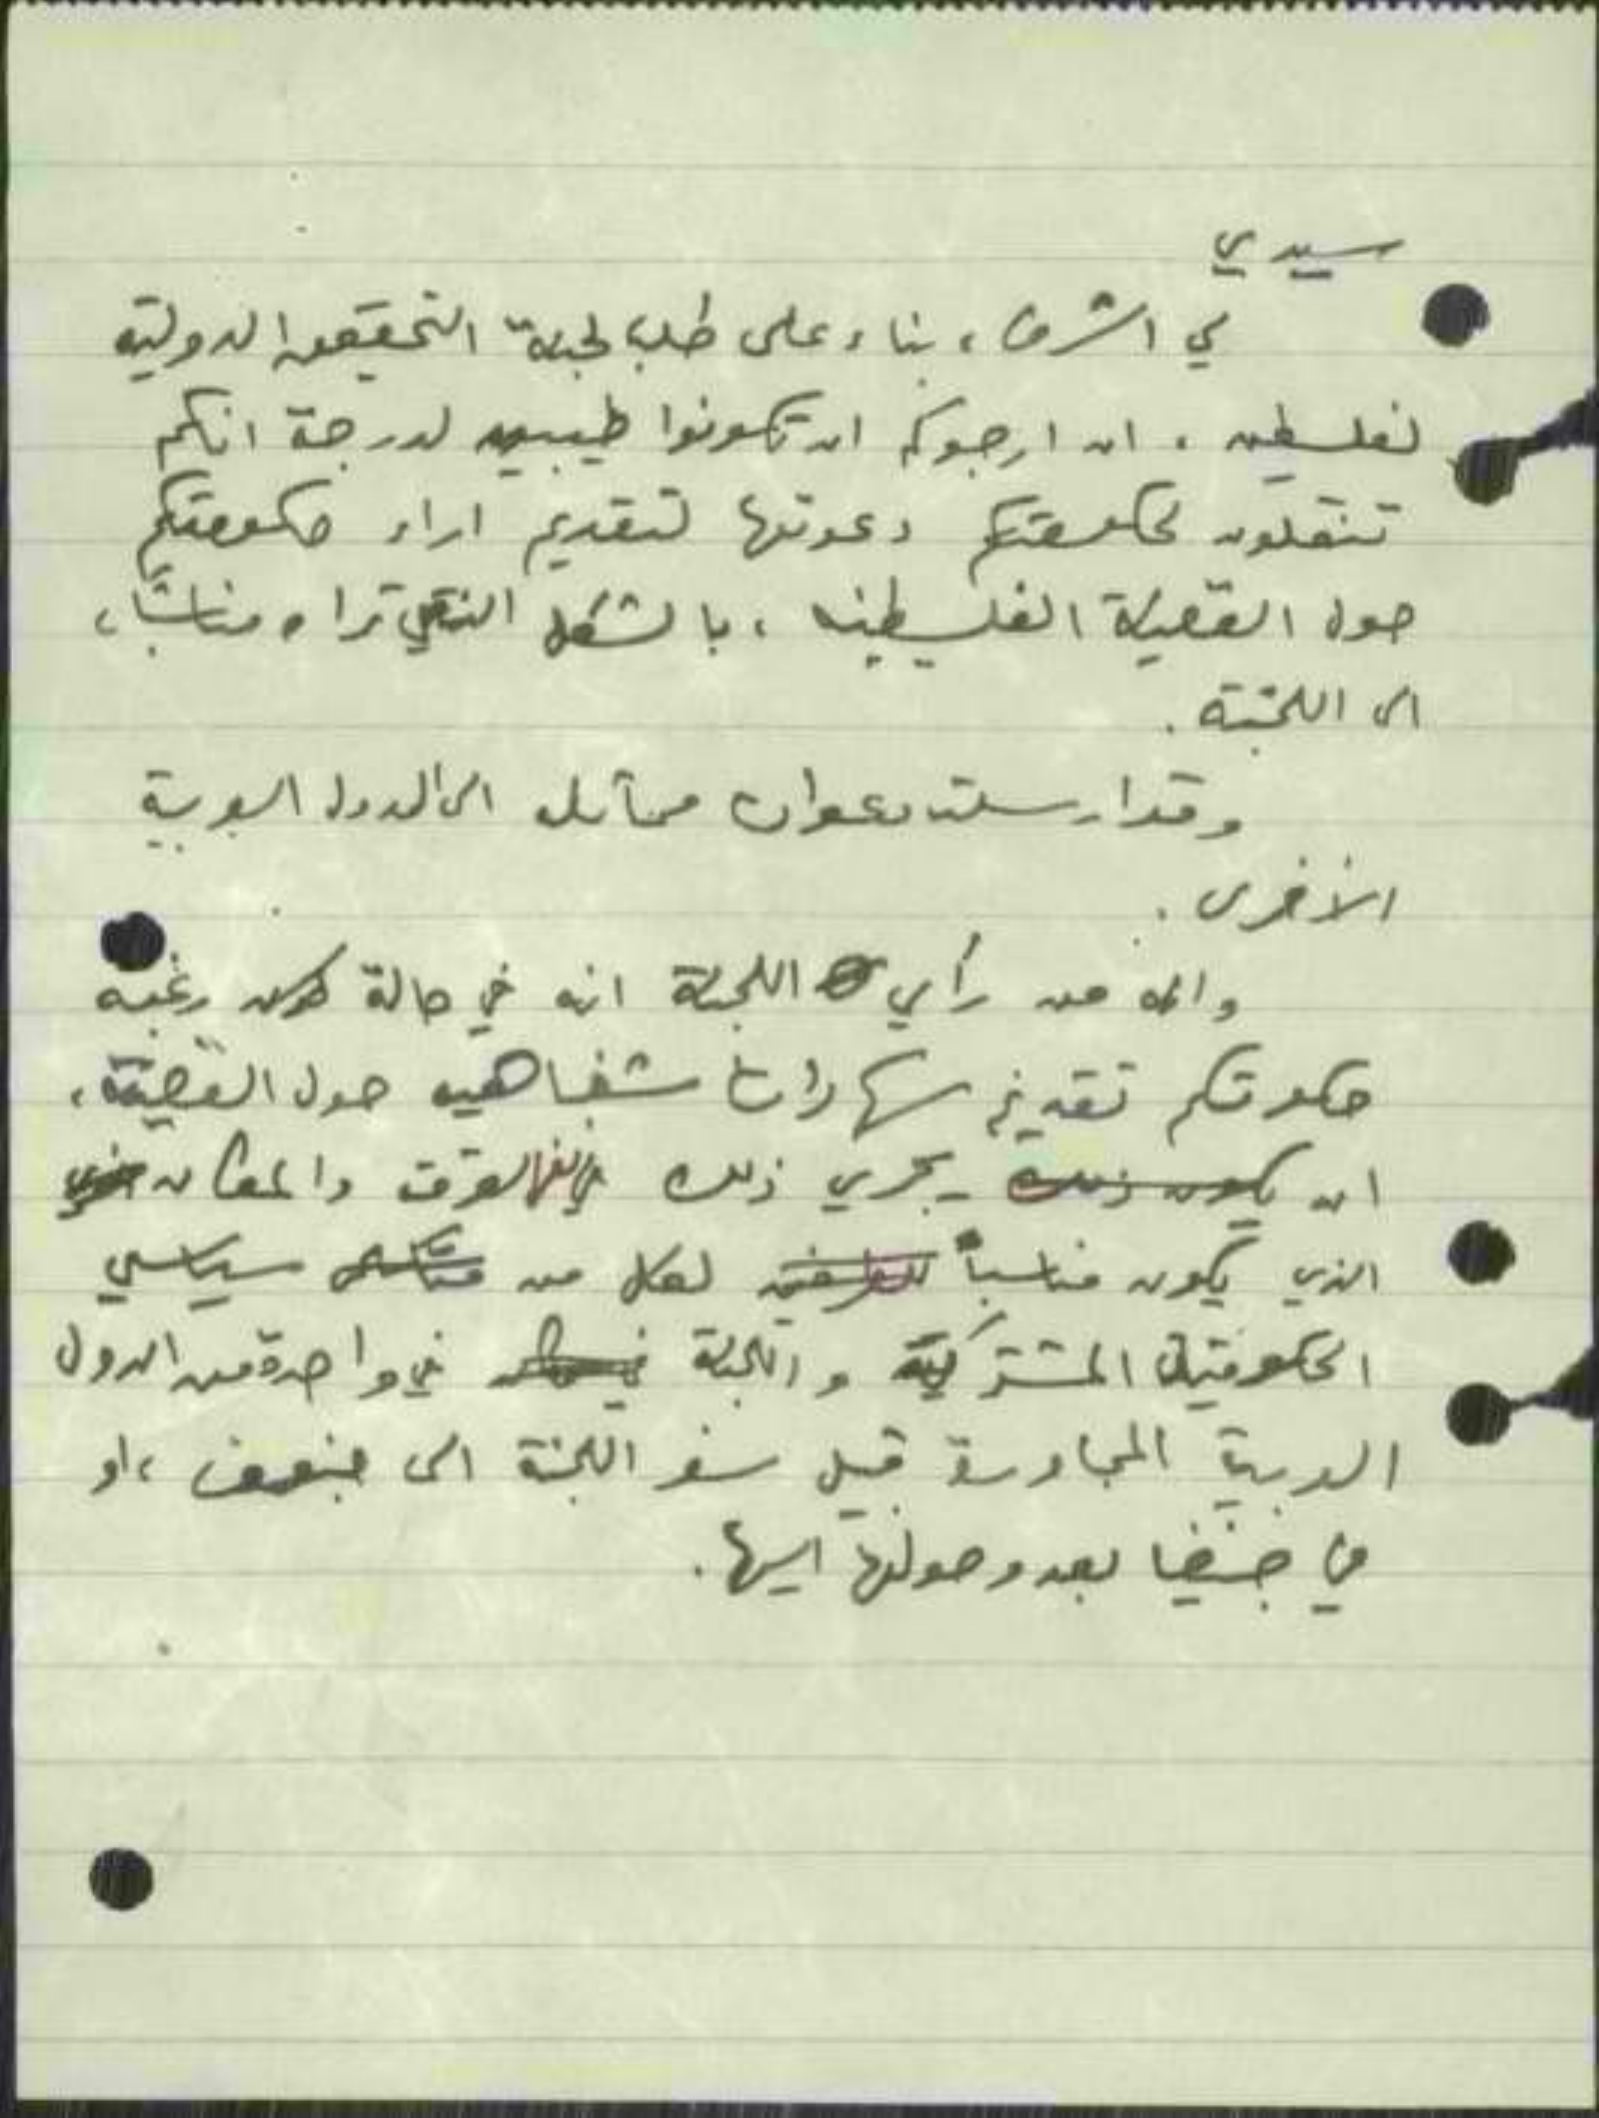 سيدي
لي الشرف، بناء على طلب لجنة التحقيق الدولية
لفلسطين، ان ارجوكم ان تكونوا طيبين لدرجة انكم
تنقلون لحكومتكم دعوتها لتقديم اراء حكومتكم
حول القضية الفلسطينيه، بالشكل الذي تراه مناسباً،
الى اللجنة.
وقد ارسلت دعوات مماثله الى الدول العربية
الأخرى.
وانه من رأي اللجنة انه في حالة رغبه
حكومتكم تقديم شهادات شفاهيه حول القضية،
ان يكون ذلك يجري ذلك في الوقت والمكان
الذي يكون مناسباً للطرفين لكل من سياسي
الحكومات المشتركة واللجنة في واحدة من الدول
العربية المجاورة قبل سفر اللجنة الى جنيف، او
في جنيفا بعد وصولها اليها.